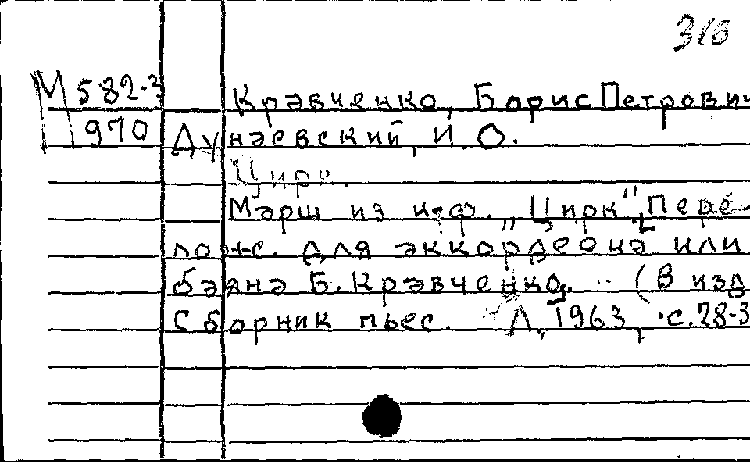 316
М 582-3
970
Кравченко, Борис Петрович
Дунаевский, И. О.
Цирк.
Марш из к-ф. "Цирк". Пере-
лож. для аккордеона или
баяна Б. Кравченко. (В изд
Сборник пьес. Л., 1963, с. 28-3